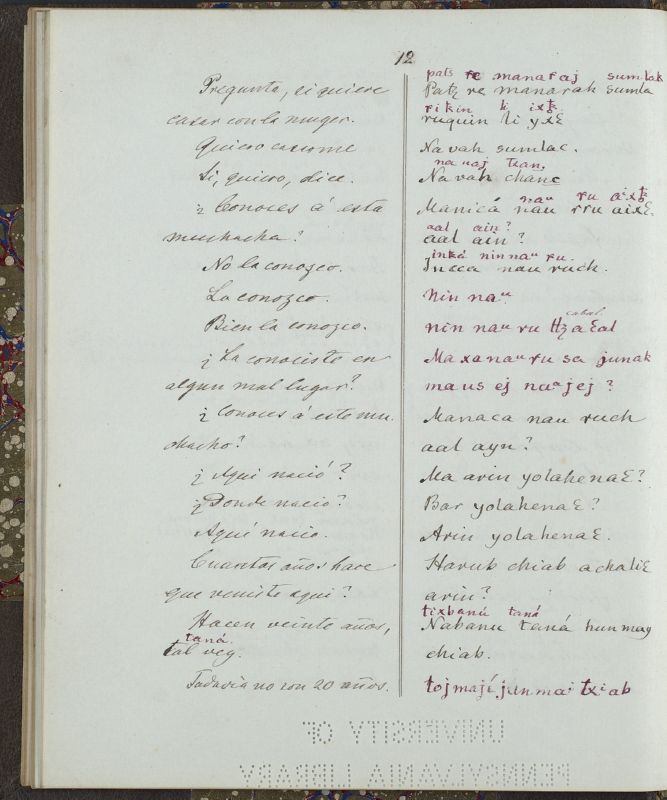 12
Pregunta, si quiere
casar con la muger.
Quiero casarme
Si, quiero, dice.
¿ Conoces á esta
muchacha?
No la conozco.
La conozco.
Bien la conozco.
¿ La conociste en
algun mal lugar?
¿ Conoces á este mu
chacho?
¿ Aqui nació?
¿ Donde nació?
Aquí nació.
Cuantos años hace
que veniste aqui?
Hacen veinte años,
taná.
tal vez.
Todavia no son 20 años.
pats re manaraj sumlak
Patꜩ re manarah sumla
riꞣin li ixꞣ
ruquin li yxꜫ
Navah sumlac.
nauaj txan.
Navah chanc
nau ru aixꞣ
Manicá nau rru aixꜫ.
aal ain?
aal ain?
inká ninnau ru.
Incca nau ruch.
Nin nau.
cabal
nin nau ru tꜩaꜫal
Ma xanau ru sa junak
maus ej naajej ?
Manaca nau ruch
aal ayn?
Ma arin yolahenaꜫ?
Bar yolahenaꜫ?
Arin yolahenaꜫ.
Harub chiab achaliꜫ
arin?
tixbanú taná
Nabanu taná hunmay
chiab.
toj mají junmai txiab
UNIVERSITY OF
PENNSYLVANIA LIBRARY